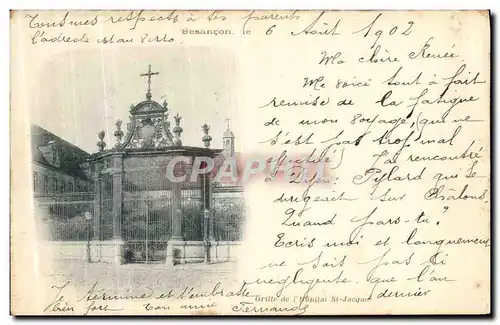 Tous mes respects à tes parents
l'adresse est au verso
Besançon, le 6 Août 1902
Ma chère Renée
Me voici tout à fait
remise de la fatigue
de mon voyage, qui ne
s'est pas trop mal
effectué. J'ai rencontré
à Dijon Pylard qui se
dirigeait sur Châlons
Quand pars-tu ?
Écris moi et longuement
ne sois pas si
négligente que l'an
dernier
Je termine et t'embrasse
bien fort ton amie Fernande
Grille de l'Hôpital St-Jacques
CPARAMA